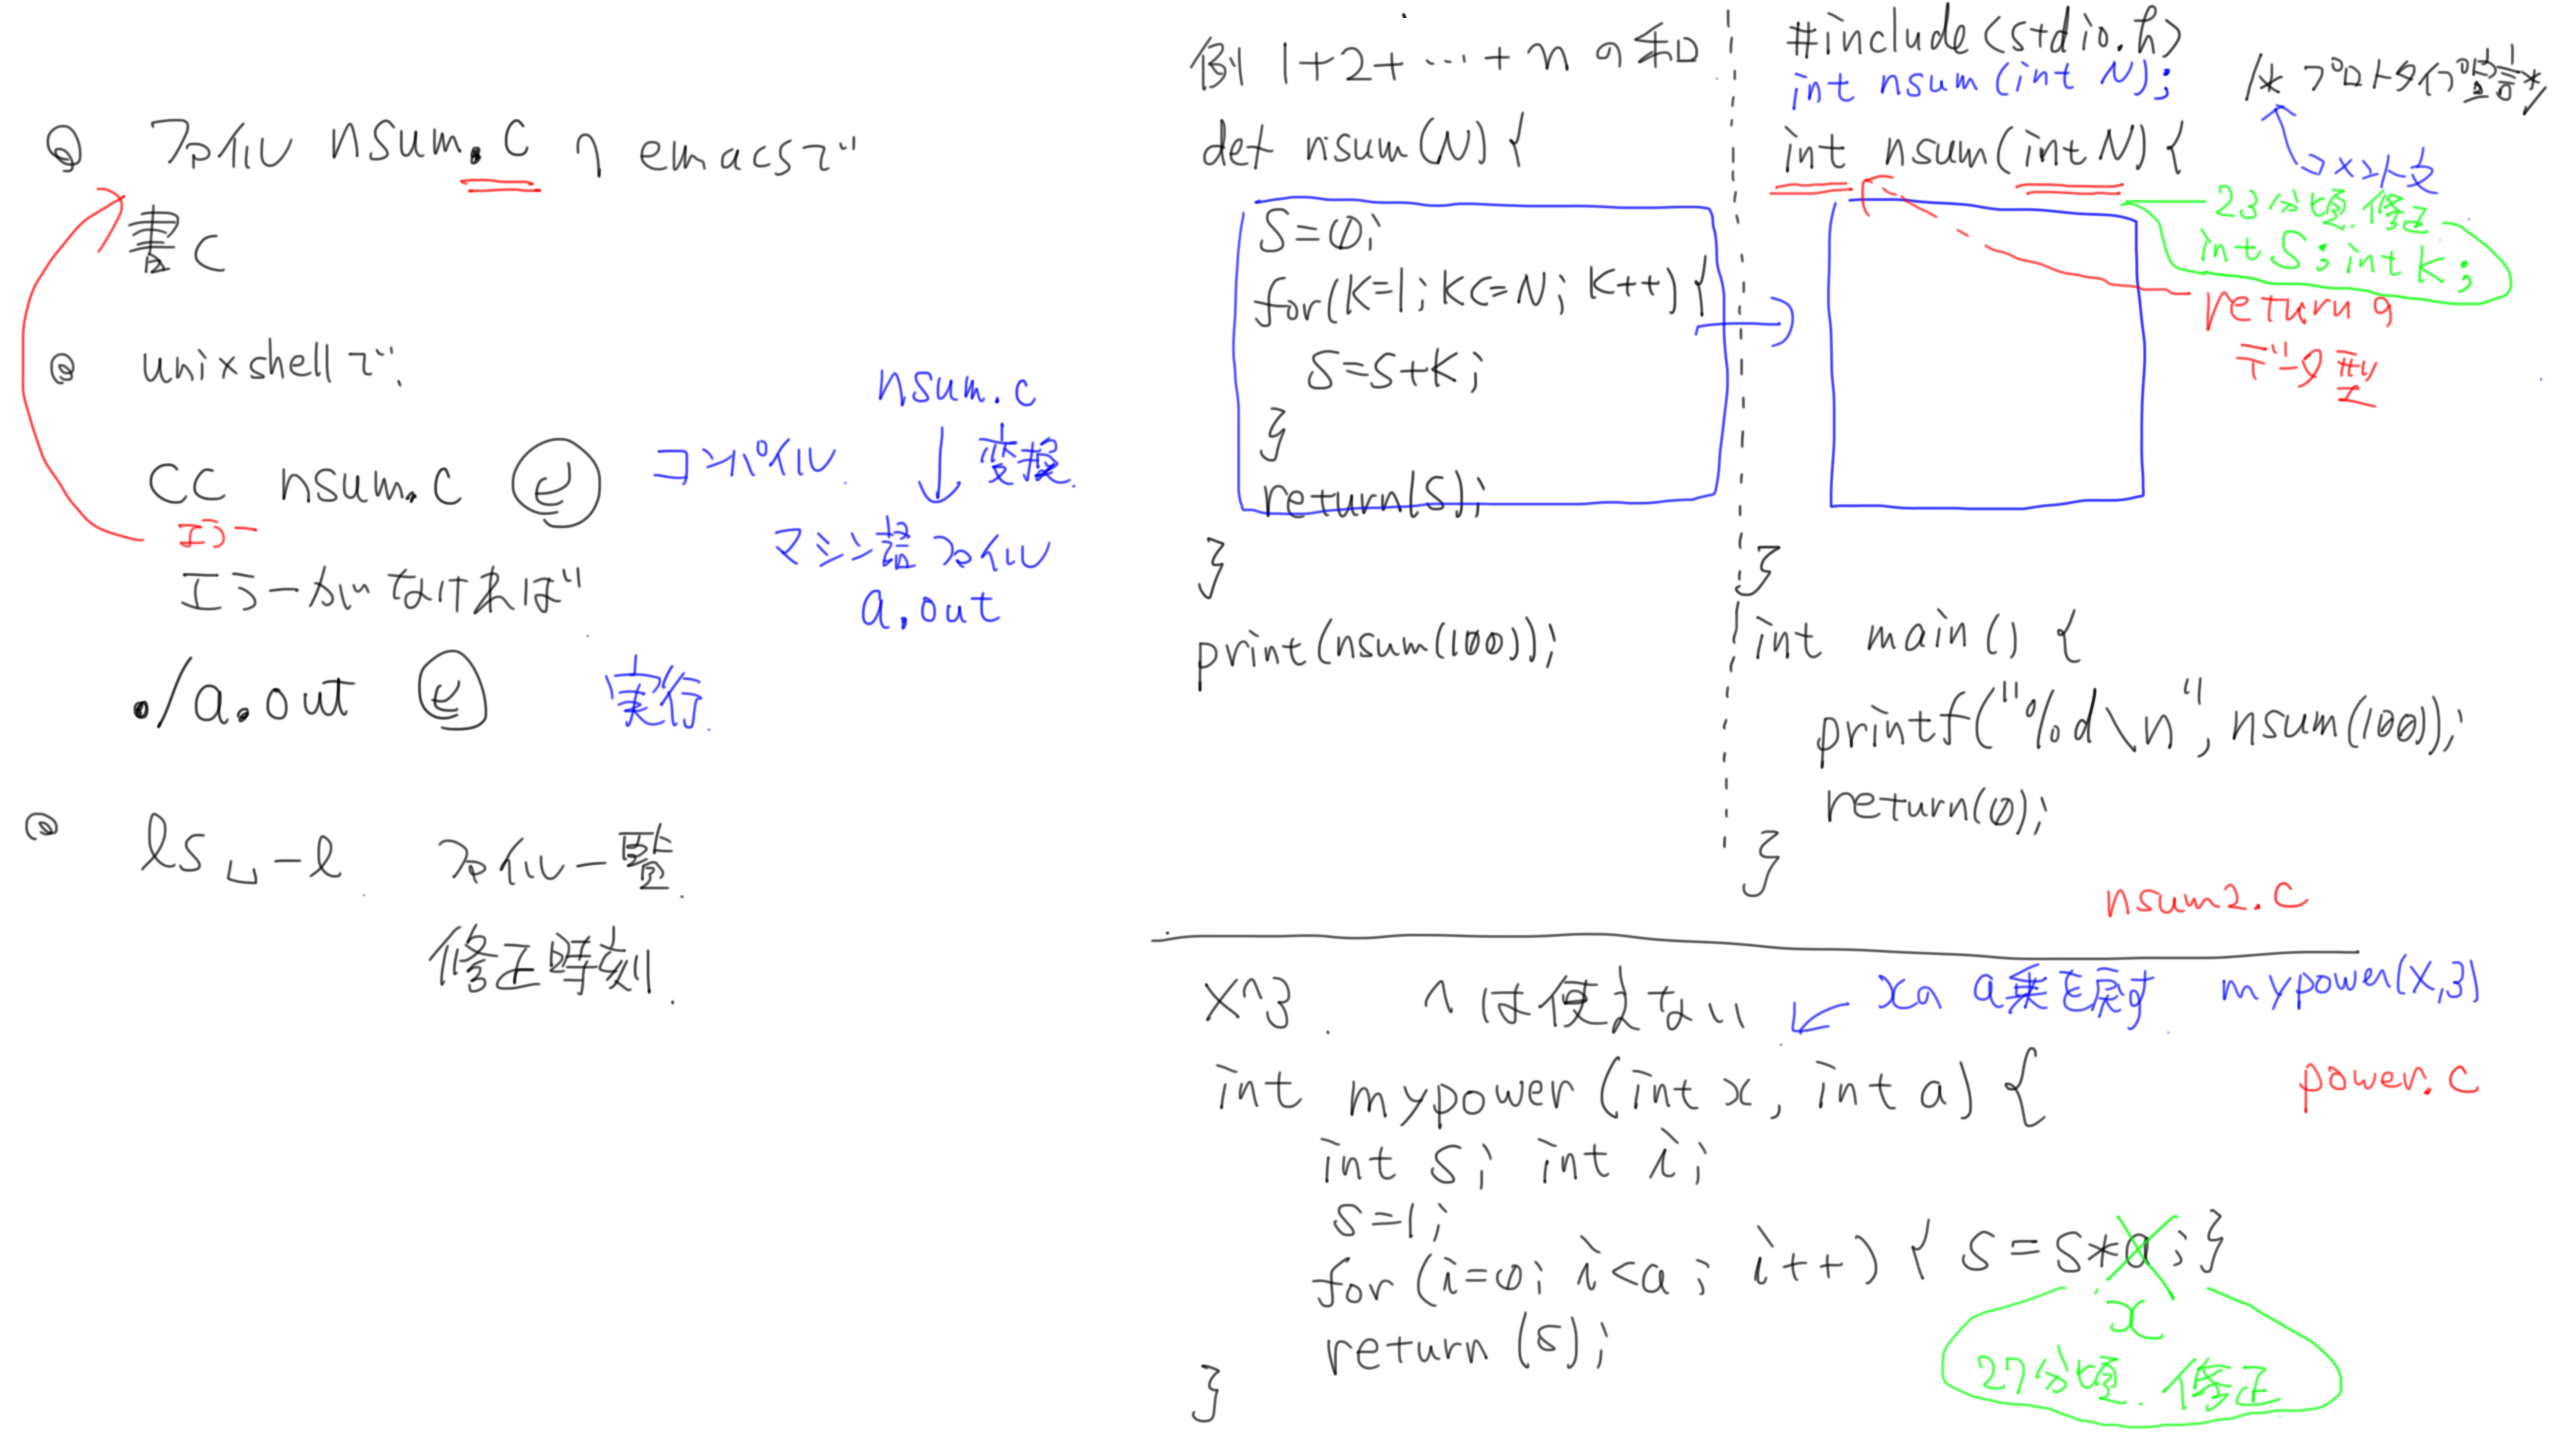 ◎ ファイル nsum.c へ emacsで
書く
◎ unix shell で、
cc nsum.c ⏎
エラー
エラーがなければ
./a.out ⏎
コンパイル
nsum.c
↓ 変換
マシン語ファイル
a.out
実行
◎ ls␣-l ファイル一覧
修正時刻
例 1+2+…+n の和
def nsum(N) {
S=0;
for(K=1; K<=N; K++) {
S=S+K;
}
return(S);
}
print(nsum(100));
#include <stdio.h>
int nsum(int N); /* プロトタイプ宣言 */
コメント文
int nsum(int N) {
23分頃 修正
int S; int K;
returnの
データ型
}
int main() {
printf("%d\n", nsum(100));
return(0);
}
nsum2.c
X^3 ^は使えない
xの a乗を戻す mypower(X,3)
power.c
int mypower (int x, int a) {
int s; int i;
s=1;
for (i=0; i<a; i++) { s=s*a;}
x
27分頃 修正
return (s);
}